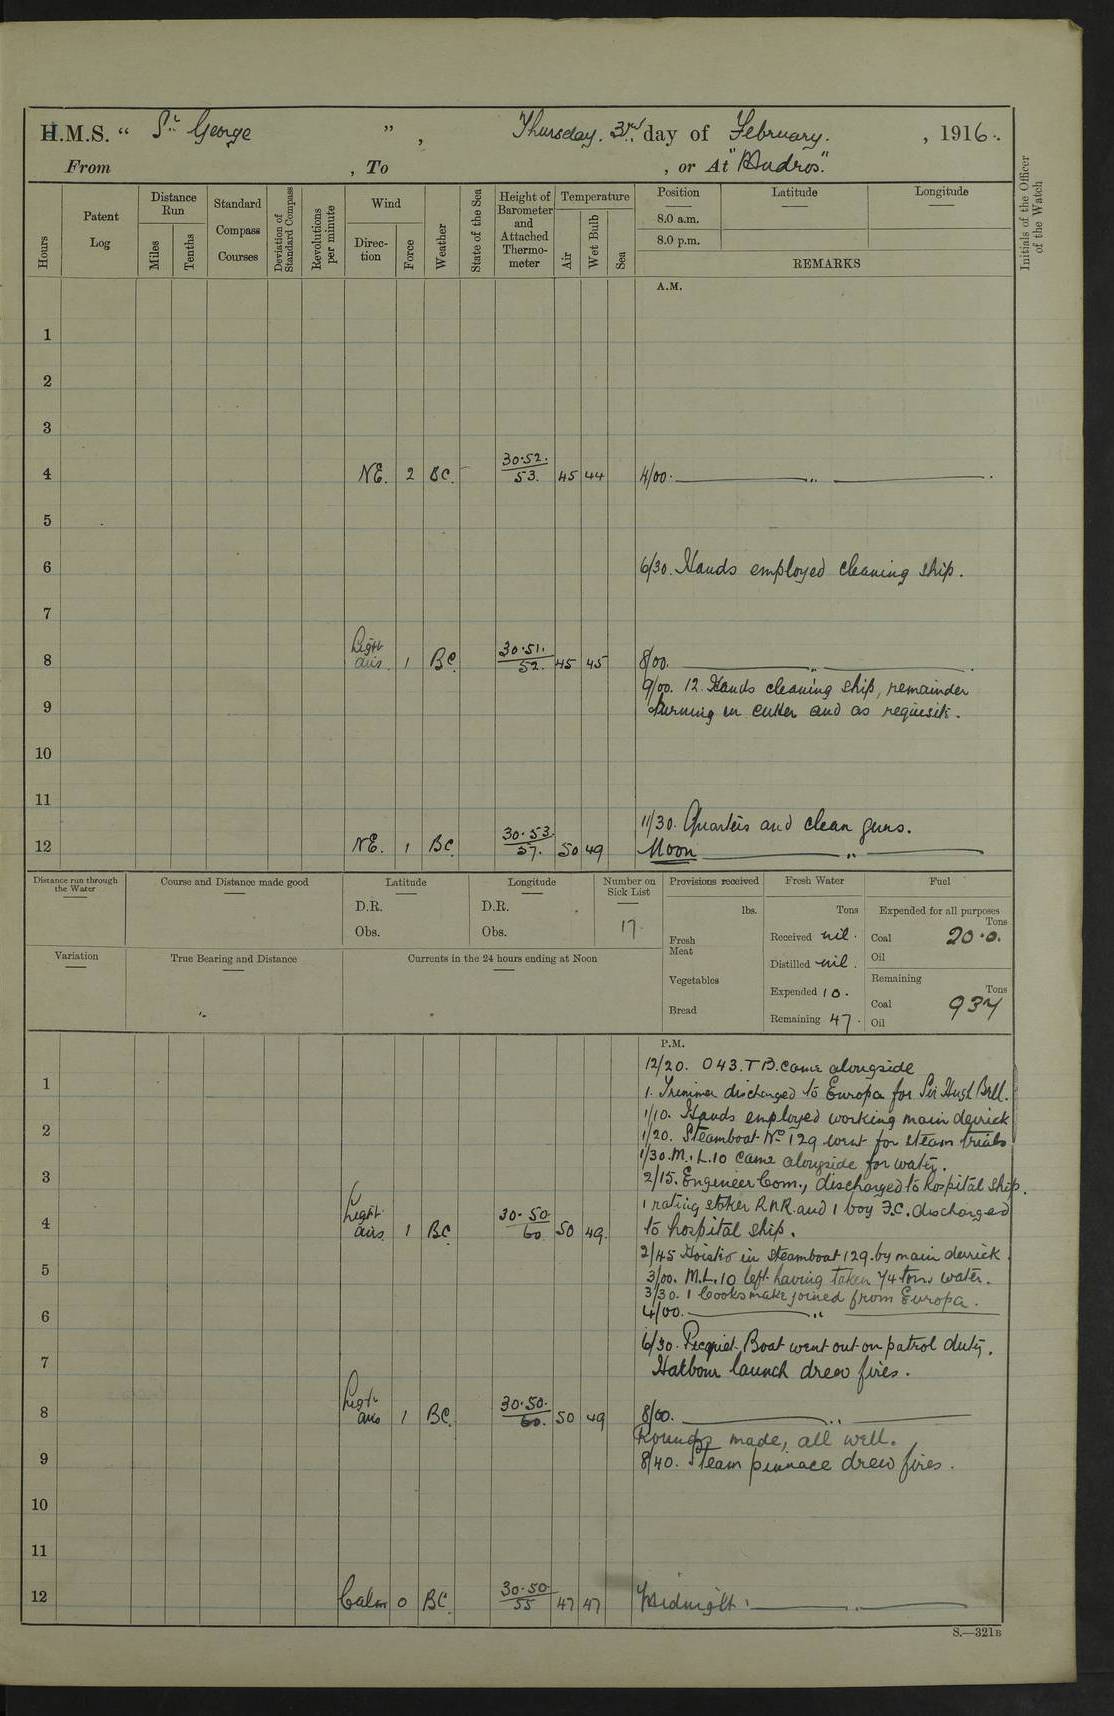 H.M.S. “ St George ” , Thursday. 3rd day of February. , 1916.
From , To , or At "Mudros."
Hours
Patent Log
Distance Run
Miles
Tenths
Standard Compass Courses
Deviation of Standard Compass
Revolutions per minute
Wind
Direction
Force
Weather
State of the Sea
Height of Barometer and Attached Thermometer
Temperature
Air
Wet Bulb
Sea
Position
Latitude
Longitude
8.0 a.m.
8.0 p.m.
REMARKS
Initials of the Officer of the Watch
A.M.
1
2
3
4 NE. 2 BC. 30.52. 53. 45 44 4/00. ,,
5
6 6/30. Hands employed cleaning ship.
7
8 Light airs. 1 BC. 30.51. 52. 45 45 8/00. ,,
9/00. 12. Hands cleaning ship, remainder
9 turning in cutter and as requisite.
10
11
11/30. Quarters and clean guns.
12 NE. 1 BC. 30.53. 57. 50 49 Noon ,,
Distance run through the Water
Course and Distance made good
Latitude
D.R.
Obs.
Longitude
D.R.
Obs.
Number on Sick List
17.
Provisions received
lbs.
Fresh Meat
Vegetables
Bread
Fresh Water
Tons
Received nil.
Distilled nil.
Expended 10.
Remaining 47.
Fuel
Expended for all purposes
Tons
Coal 20.0.
Oil
Remaining
Tons
Coal 937
Oil
Variation
True Bearing and Distance
Currents in the 24 hours ending at Noon
P.M.
12/20. 043. T B. came alongside
1 1. Trimmer discharged to Europa for Sir Hugh Bell.
1/10. Hands employed working main derrick
2 1/20. Steamboat No 129 went for steam trials
1/30. M.L.10 came alongside for water.
3 2/15. Engineer Com., discharged to hospital ship.
1 rating stoker R.N.R. and 1 boy F.C. discharged
4 Light airs. 1 BC. 30.50. 60. 50 49. to hospital ship.
2/45 Hoisted in steamboat 129. by main derrick.
5 3/00. M.L.10 left having taken 1/4 tons water.
3/30. 1 Cooks mate joined from Europa.
6 4/00. ,,
6/30. Picquet Boat went out on patrol duty.
7 Harbour launch drew fires.
8 Light airs 1 BC. 30.50. 60. 50 49 8/00. ,,
Rounds made, all well.
9 8/40. Steam pinnace drew fires.
10
11
12 Calm 0 BC. 30.50. 55 47 47 Midnight. ,,
S.—321B